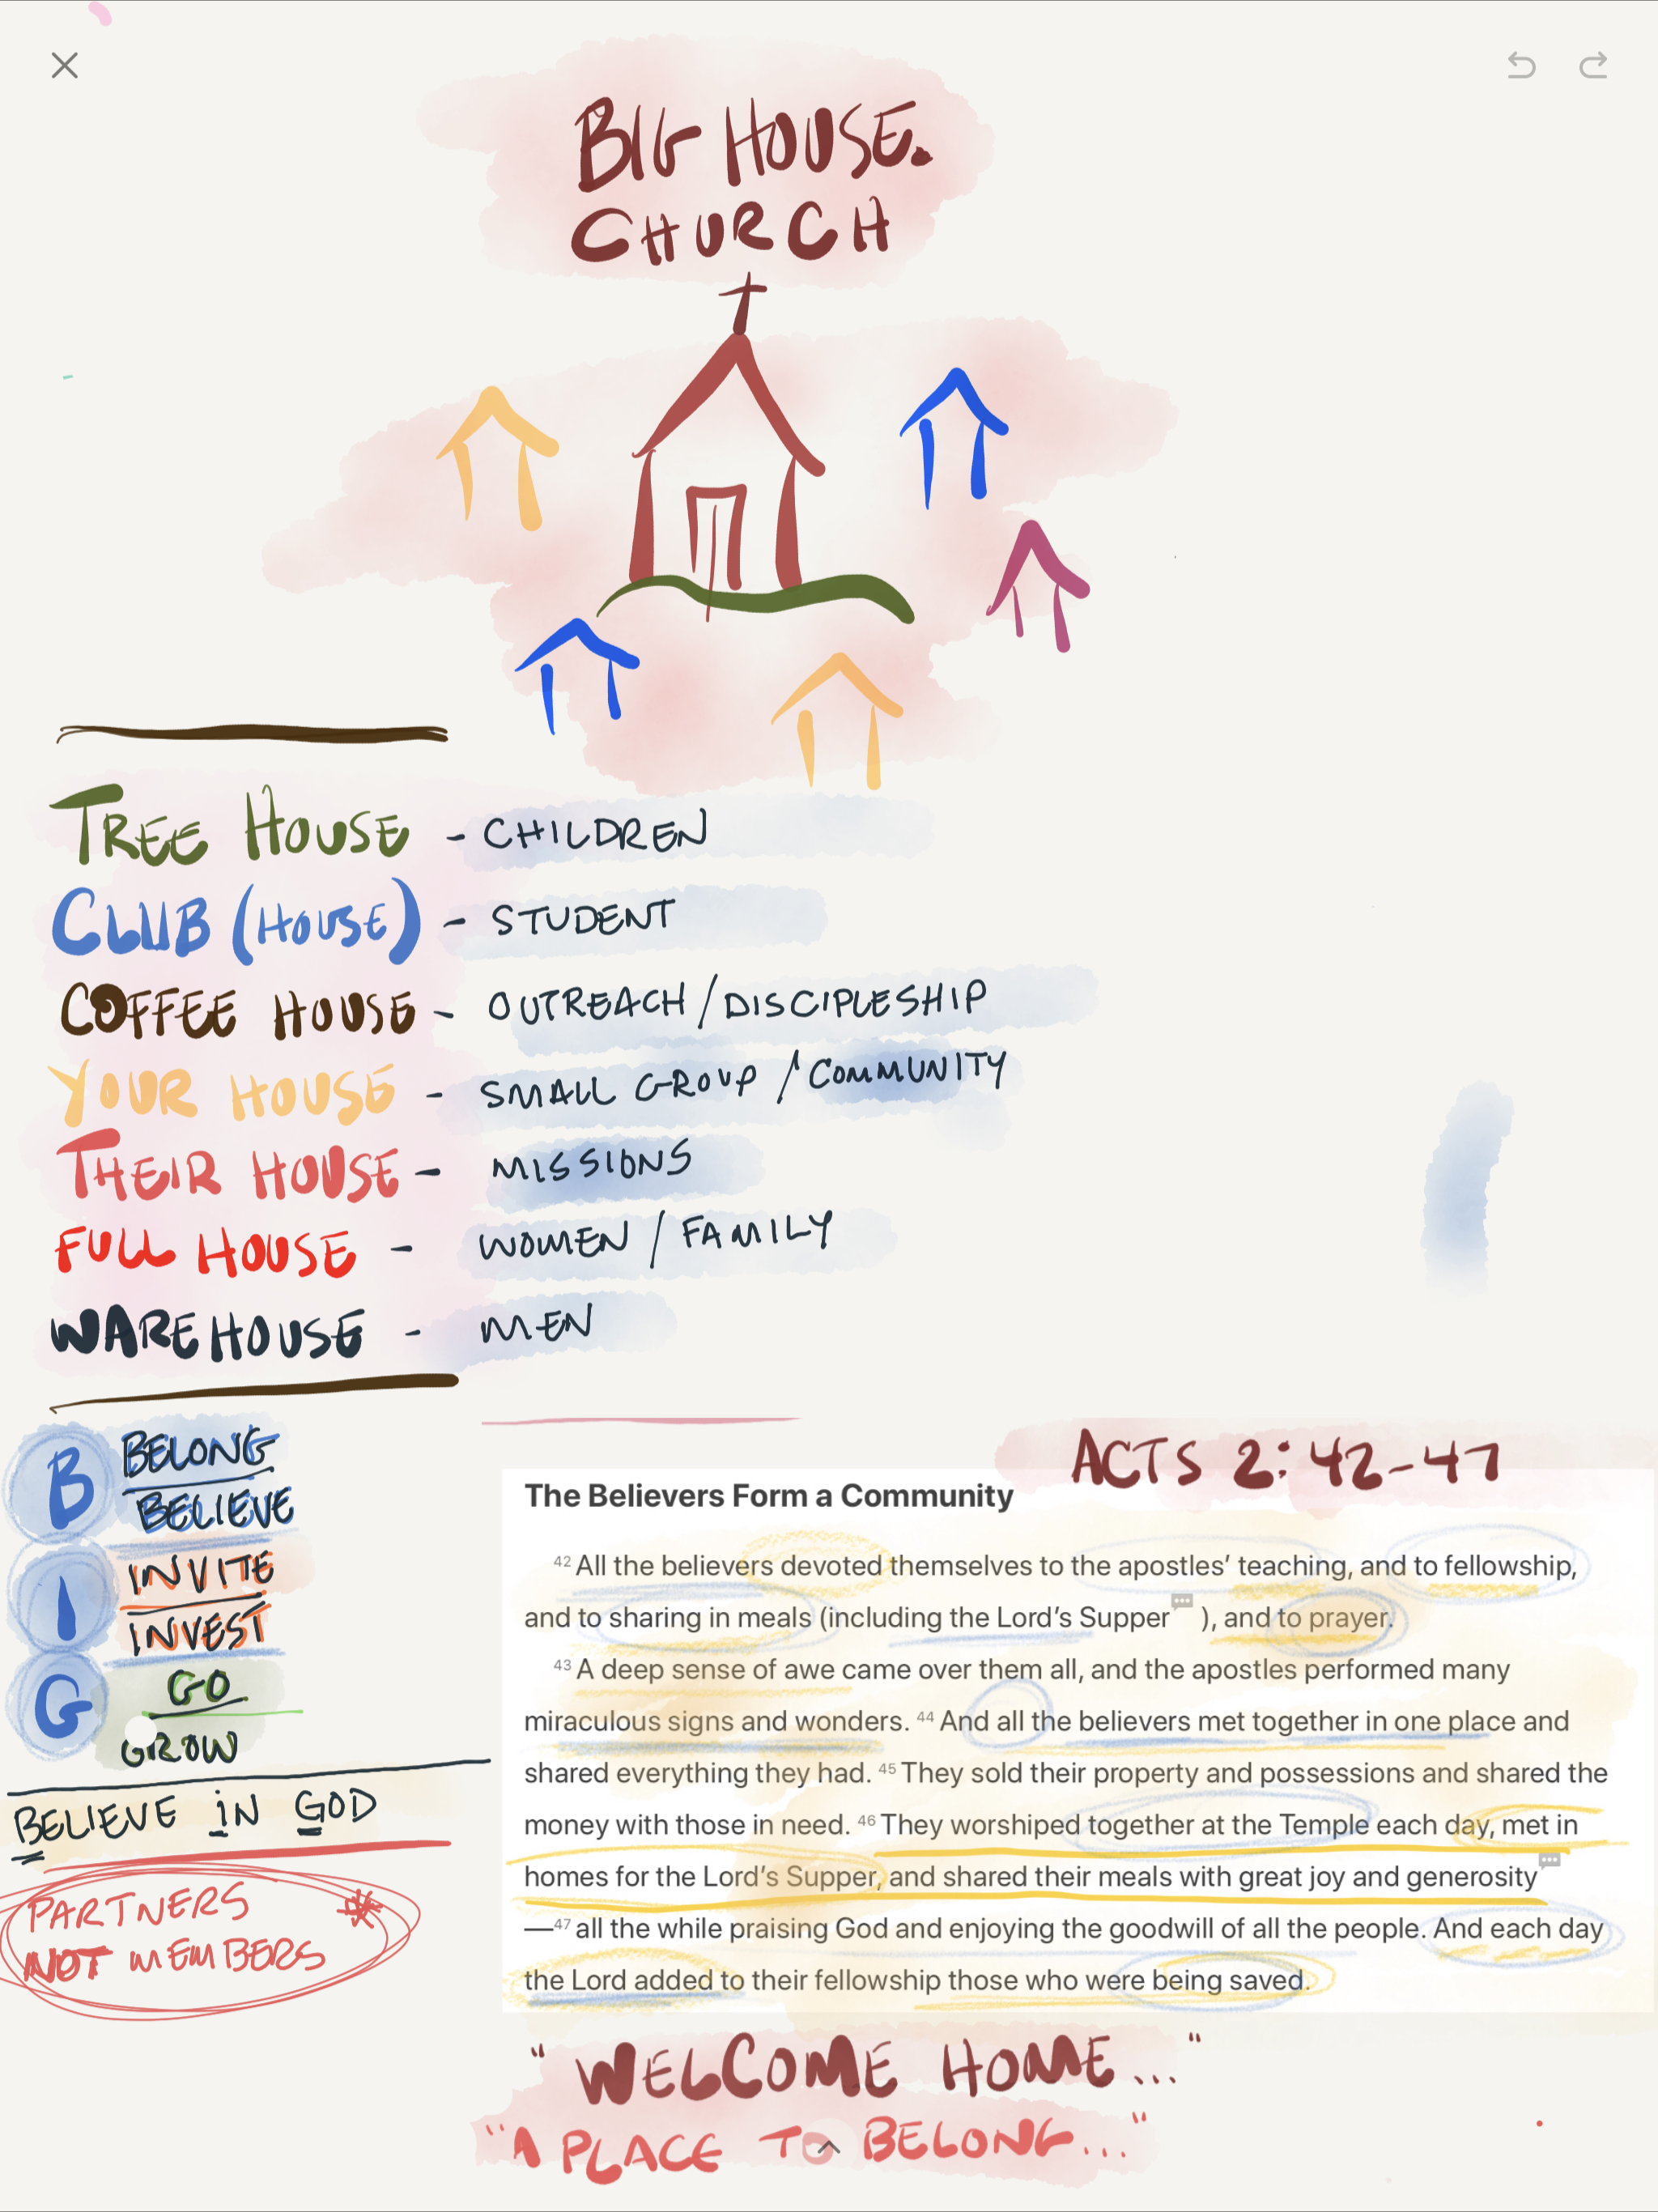 BIG HOUSE.
CHURCH
TREE HOUSE - CHILDREN
CLUB (HOUSE) - STUDENT
COFFEE HOUSE - OUTREACH / DISCIPLESHIP
YOUR HOUSE - SMALL GROUP / COMMUNITY
THEIR HOUSE - MISSIONS
FULL HOUSE - WOMEN / FAMILY
WAREHOUSE - MEN
B BELONG
BELIEVE
I INVITE
INVEST
G GO
GROW
BELIEVE iN GOD
PARTNERS
NOT MEMBERS
ACTS 2:42-47
The Believers Form a Community
42 All the believers devoted themselves to the apostles’ teaching, and to fellowship,
and to sharing in meals (including the Lord’s Supper ), and to prayer.
43 A deep sense of awe came over them all, and the apostles performed many
miraculous signs and wonders. 44 And all the believers met together in one place and
shared everything they had. 45 They sold their property and possessions and shared the
money with those in need. 46 They worshiped together at the Temple each day, met in
homes for the Lord’s Supper, and shared their meals with great joy and generosity
—47 all the while praising God and enjoying the goodwill of all the people. And each day
the Lord added to their fellowship those who were being saved.
"WELCOME HOME..."
"A PLACE TO BELONG..."